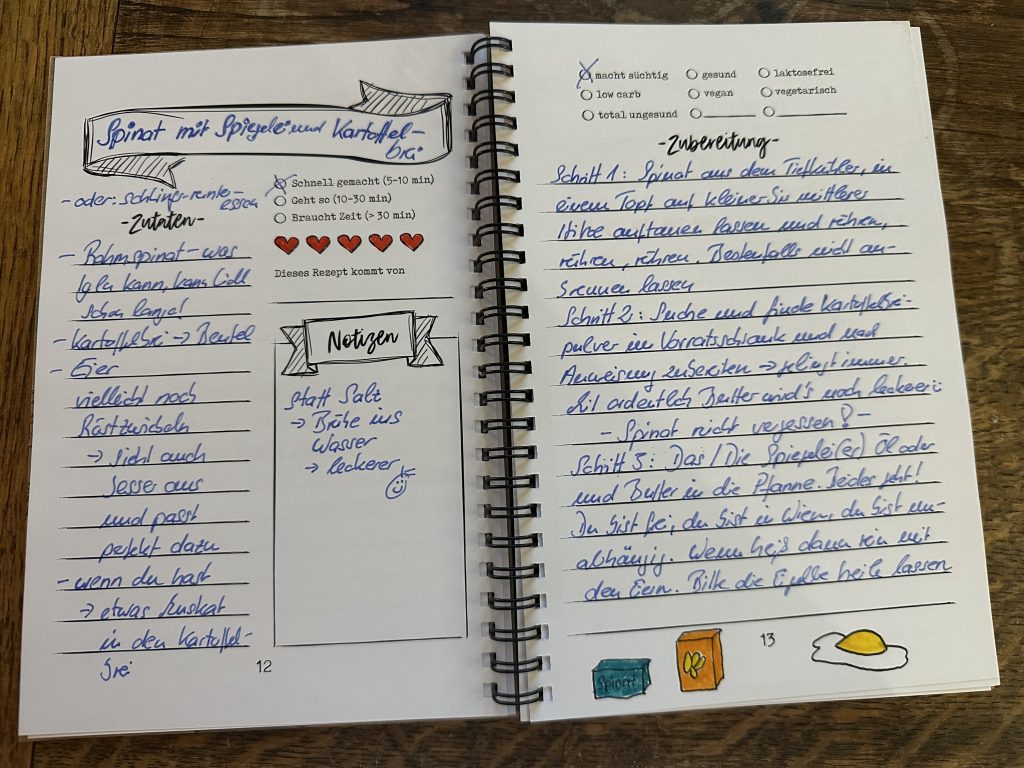 Spinat mit Spiegelei und Kartoffel-
brei
- oder: schlingt-runter-
essen
-Zutaten-
- Rahmspinat - was
Iglu kann, kann Lidl
schon lange!
- Kartoffelbrei → Beutel
- Eier
vielleicht noch
Röstzwiebeln
→ sieht auch
besser aus
und passt
perfekt dazu
- wenn du hast
→ etwas Muskat
in den Kartoffel-
brei
12
Schnell gemacht (5-10 min)
Geht so (10-30 min)
Braucht Zeit (> 30 min)
Dieses Rezept kommt von
Notizen
statt Salz
→ Brühe ins
Wasser
→ leckerer
macht süchtig
gesund
laktosefrei
low carb
vegan
vegetarisch
total ungesund
-Zubereitung-
Schritt 1: Spinat aus dem Tiefkühler, in
einem Topf auf kleiner bis mittlerer
Hitze auftauen lassen und rühren,
rühren, rühren. Bestenfalls nicht an-
brennen lassen
Schritt 2: Suche und finde Kartoffelbrei-
pulver im Vorratsschrank und nach
Anweisung zubereiten → gelingt immer
Mit ordentlich Butter wird's noch leckerer
- Spinat nicht vergessen! -
Schritt 3: Das / Die Spiegelei(er) Öl oder
und Butter in die Pfanne. Beides geht!
Du bist frei, du bist in Wien, du bist un-
abhängig. Wenn heiß dann rein mit
den Eiern. Bitte die Eigelbe heile lassen
Spinat
13